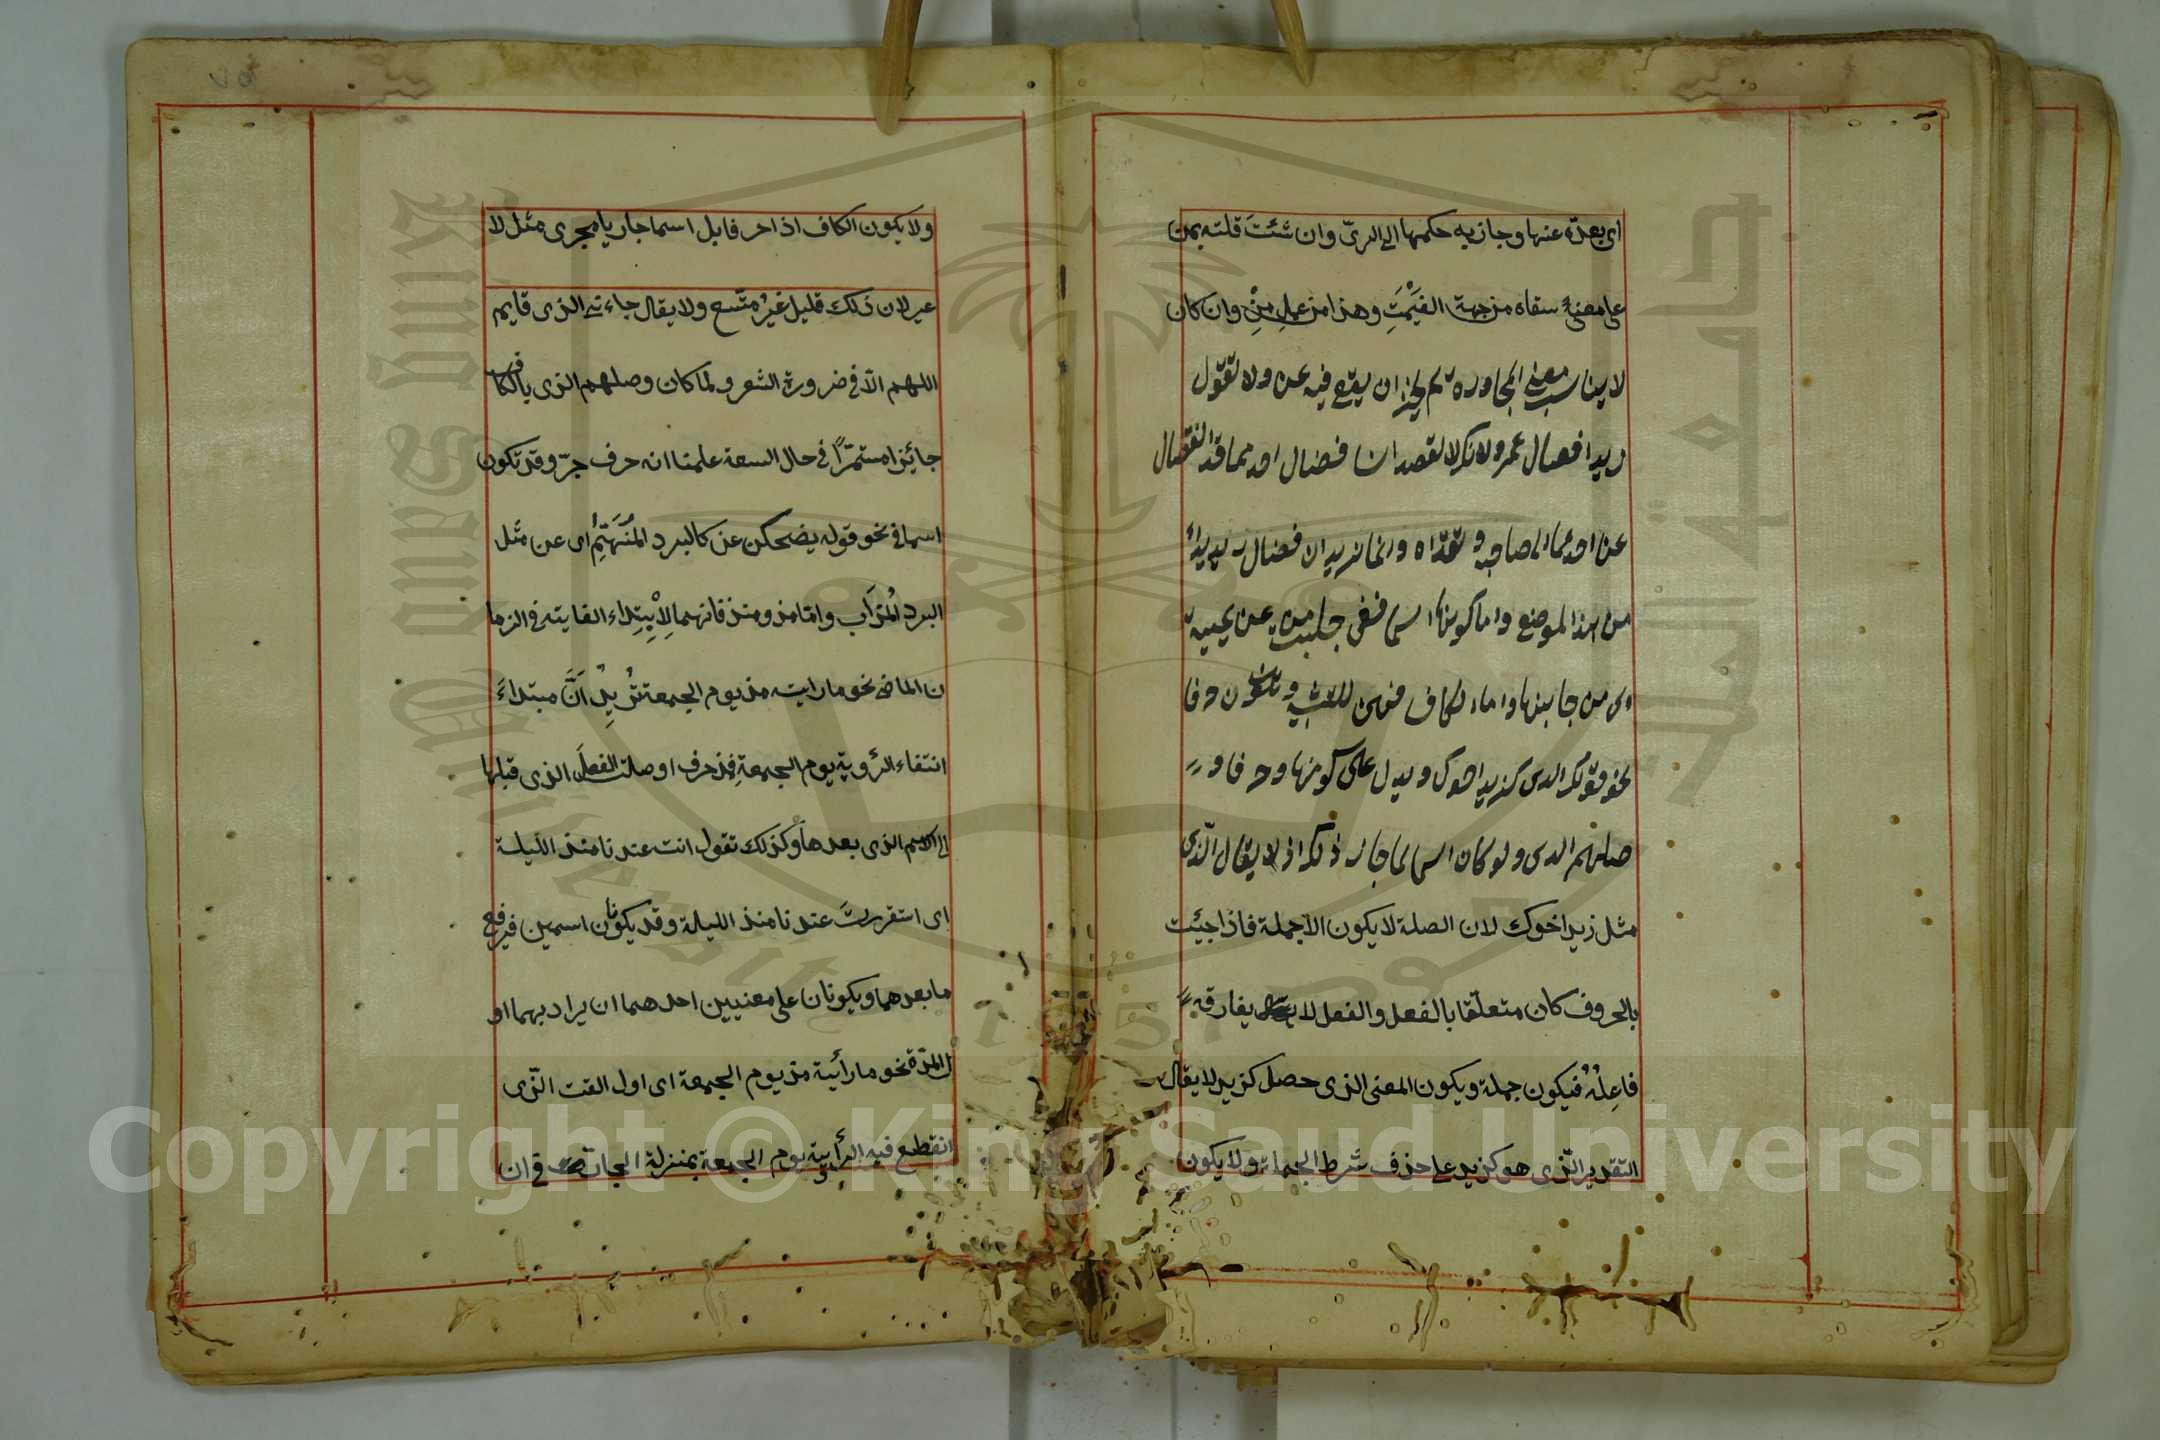 اى بعدّه عنها وجاز به حكمها الى الرىّ وان شئتَ قلته بمن
على معنى سقاه من جهة الغَيْمَتِ وهذا من عمل مِنْ وان كان
لا يناسب معنى المجاوزة لم يجز ان يقع فيه عن ولا تقول
زيدا فضال عمرو لانك لا تقصد انفصال احدهما قد انفصال
عن احدهما الى صاحبه وتعدّاه وانما تريد ان فضال زيد يبدأ
من هذا الموضع واما كونها اسما ففى جلست من عن يمينه
اى من جانبها واما الكاف فهى للتشبيه وتكون حرفا
نحو قولك الذى كزيد اخوك ويدل على كونها حرفا و
صلتهم الذى ولو كان اسما لما جاز ذلك اذ لا يقال الّذى
مثل زيد اخوك لان الصلة لا يكون الا جملة فاذا جيئت
بالحروف كان متعلّقا بالفعل والفعل لا يفارقه
فاعِلُهُ فيكون جملة ويكون المعنى الذى حصل كزيد لا يقال
التقدير الّذى هو كزيد على حذف شرط الجملة ولا يكون
ولا يكون الكاف اذا حر فابل اسما جاريا مجرى مثل لا
عير لان ذلك قليل غيرُ متّسع ولا يقال جاءنى الذى قايم
اللهم الّا فى ضرورة الشعر ولما كان وصلهم الذى بالكاف
جائزا مستمرّا فى حال السعة علمنا انه حرف جرّ وقد تكون
اسما فى نحو قوله يضحكن عن كالبرد المُنْهَمِّ اى عن مثل
البرد المُذَاب وامّا مذ ومنذ فانهما لِاْبِتِداء الغايته فى الزما
ن الماضى نحو ما رايته مذ يوم الجمعة تُرِيدُ اَنَّ مبتداءَ
انتفاء الرؤية يوم الجمعةِ فمذ حرف اوصلت الفعلَ الذى قبلها
الى الاسم الذى بعدها وكذلك تقول انت عندنا منذ الليلة
اى استقررتَ عندنا منذ الليلة وقد يكونان اسمين فيرفع
ما بعدهما ويكونان على معنيين احدهما ان يراد بهما او
ل المدّة نحو ما رأئية مذ يوم الجمعة اى اول القت الّذى
انقطع فيه الرأية يوم الجمعة بمنزلة فى ان
Copyright © King Saud University
King Saud University
1957